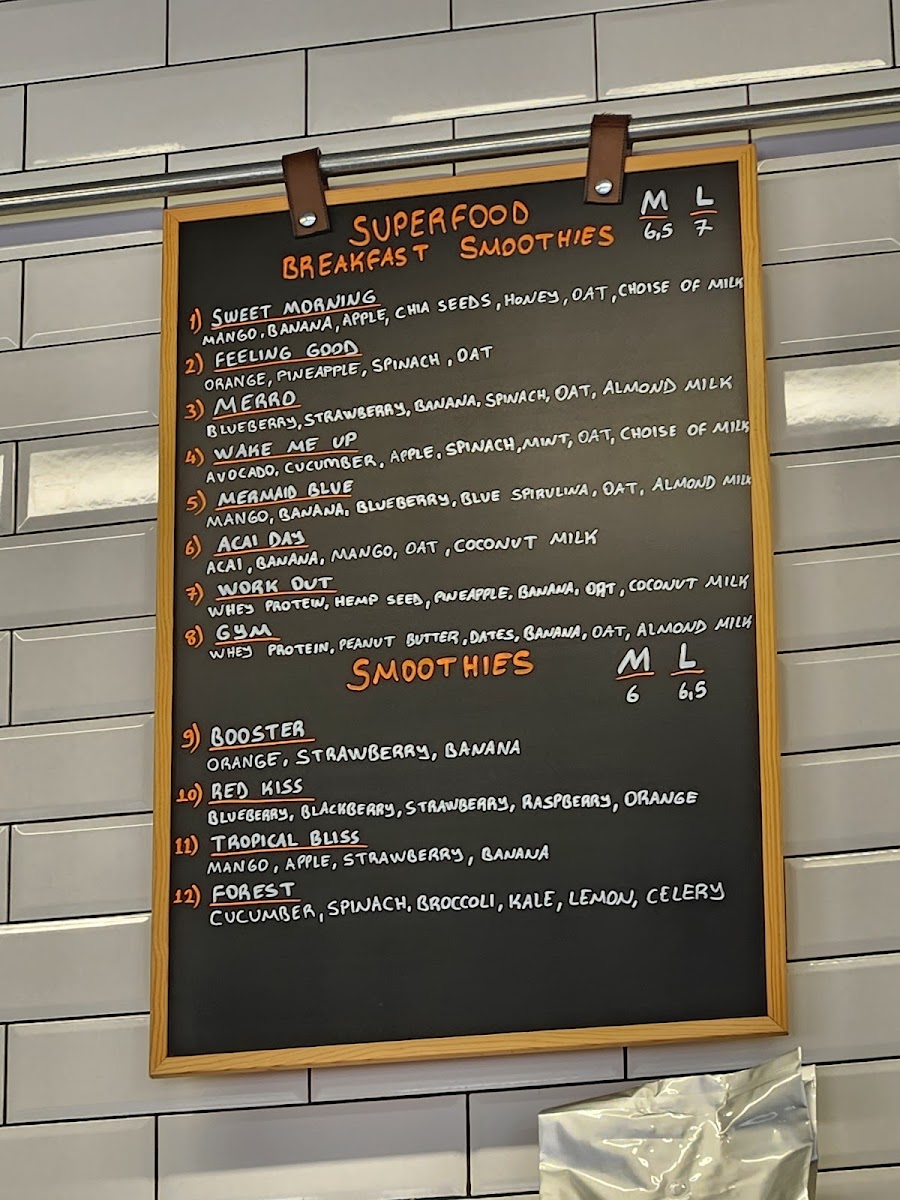 SUPERFOOD
BREAKFAST SMOOTHIES
M L
6,5 7
1) SWEET MORNING
MANGO, BANANA, APPLE, CHIA SEEDS, HONEY, OAT, CHOISE OF MILK
2) FEELING GOOD
ORANGE, PINEAPPLE, SPINACH, OAT
3) MERRO
BLUEBERRY, STRAWBERRY, BANANA, SPINACH, OAT, ALMOND MILK
4) WAKE ME UP
AVOCADO, CUCUMBER, APPLE, SPINACH, MINT, OAT, CHOISE OF MILK
5) MERMAID BLUE
MANGO, BANANA, BLUEBERRY, BLUE SPIRULINA, OAT, ALMOND MILK
6) ACAI DAY
ACAI, BANANA, MANGO, OAT, COCONUT MILK
7) WORK OUT
WHEY PROTEIN, HEMP SEED, PINEAPPLE, BANANA, OAT, COCONUT MILK
8) GYM
WHEY PROTEIN, PEANUT BUTTER, DATES, BANANA, OAT, ALMOND MILK
SMOOTHIES
M L
6 6,5
9) BOOSTER
ORANGE, STRAWBERRY, BANANA
10) RED KISS
BLUEBERRY, BLACKBERRY, STRAWBERRY, RASPBERRY, ORANGE
11) TROPICAL BLISS
MANGO, APPLE, STRAWBERRY, BANANA
12) FOREST
CUCUMBER, SPINACH, BROCCOLI, KALE, LEMON, CELERY